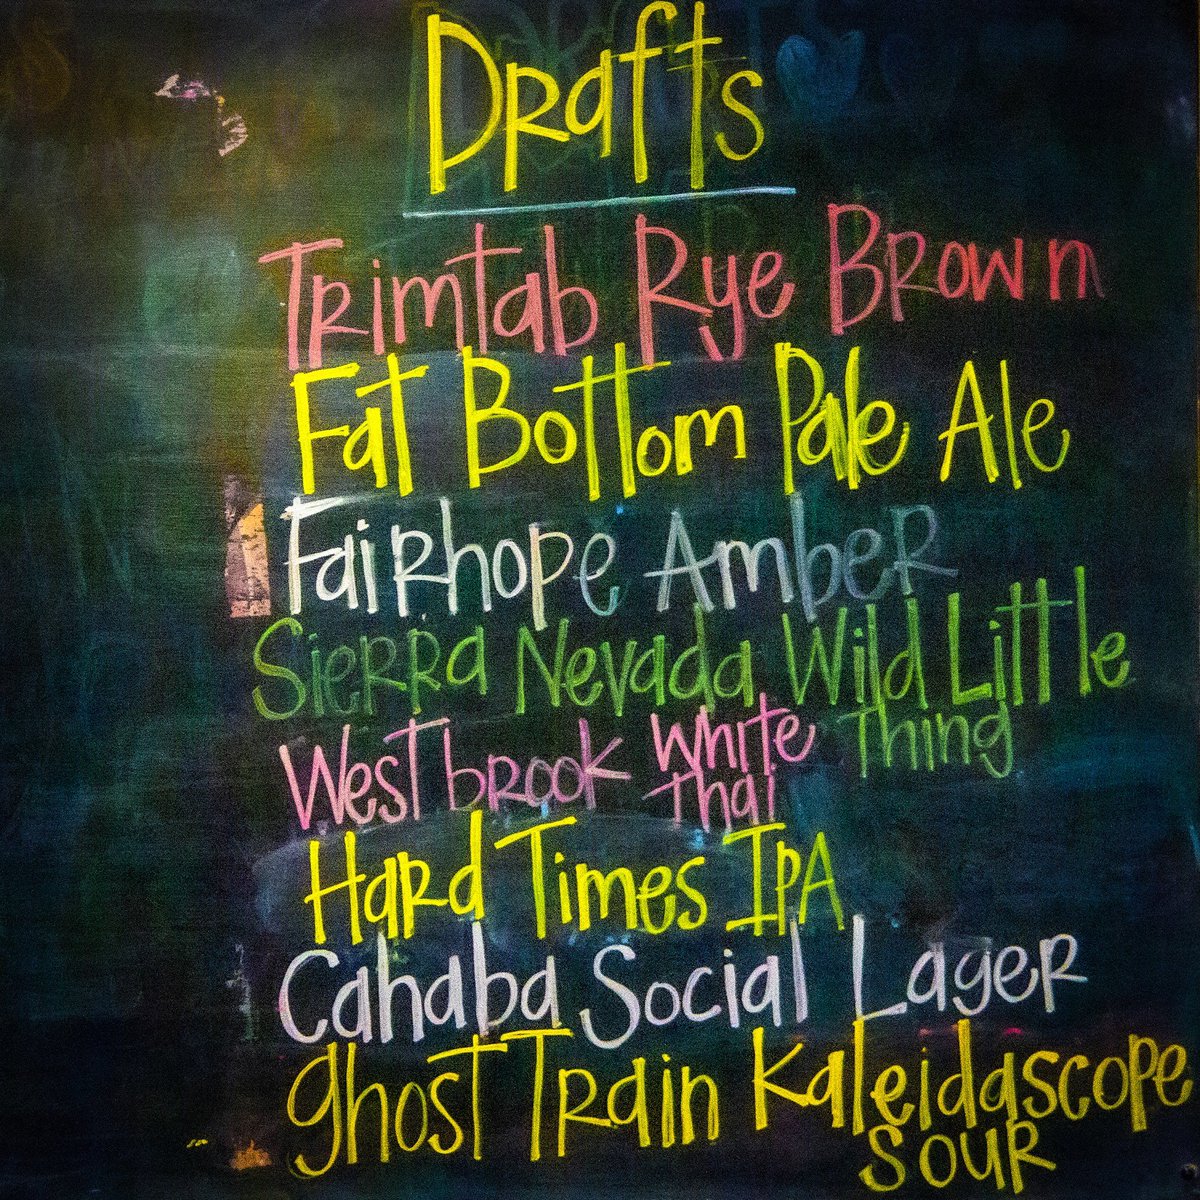 Drafts
Trimtab Rye Brown
Fat Bottom Pale Ale
Fairhope Amber
Sierra Nevada Wild Little
Thing
Westbrook White
Thai
Hard Times IPA
Cahaba Social Lager
Ghost Train Kaleidascope
Sour